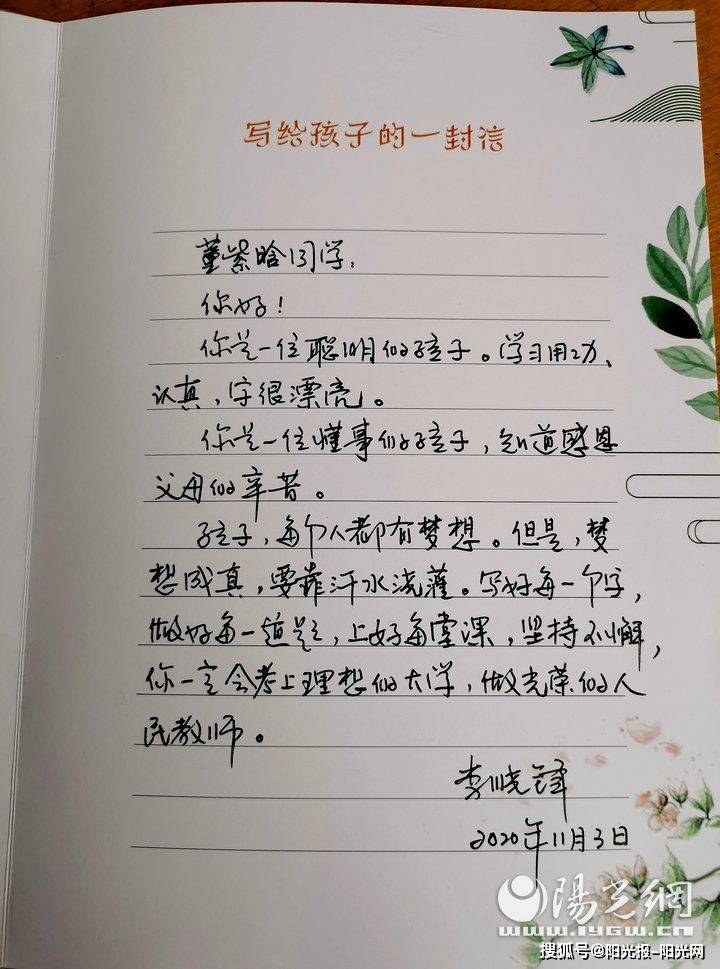 写给孩子的一封信
董紫晗同学：
你好！
你是一位聪明的孩子。学习用功、
认真，字很漂亮。
你是一位懂事的好孩子，知道感恩
父母的辛苦。
孩子，每个人都有梦想。但是，梦
想成真，要靠汗水浇灌。写好每一个字，
做好每一道题，上好每堂课，坚持不懈，
你一定会考上理想的大学，做光荣的人
民教师。
李晓锋
2020年11月3日
陽光網
www.iygw.cn
搜狐号@阳光报-阳光网